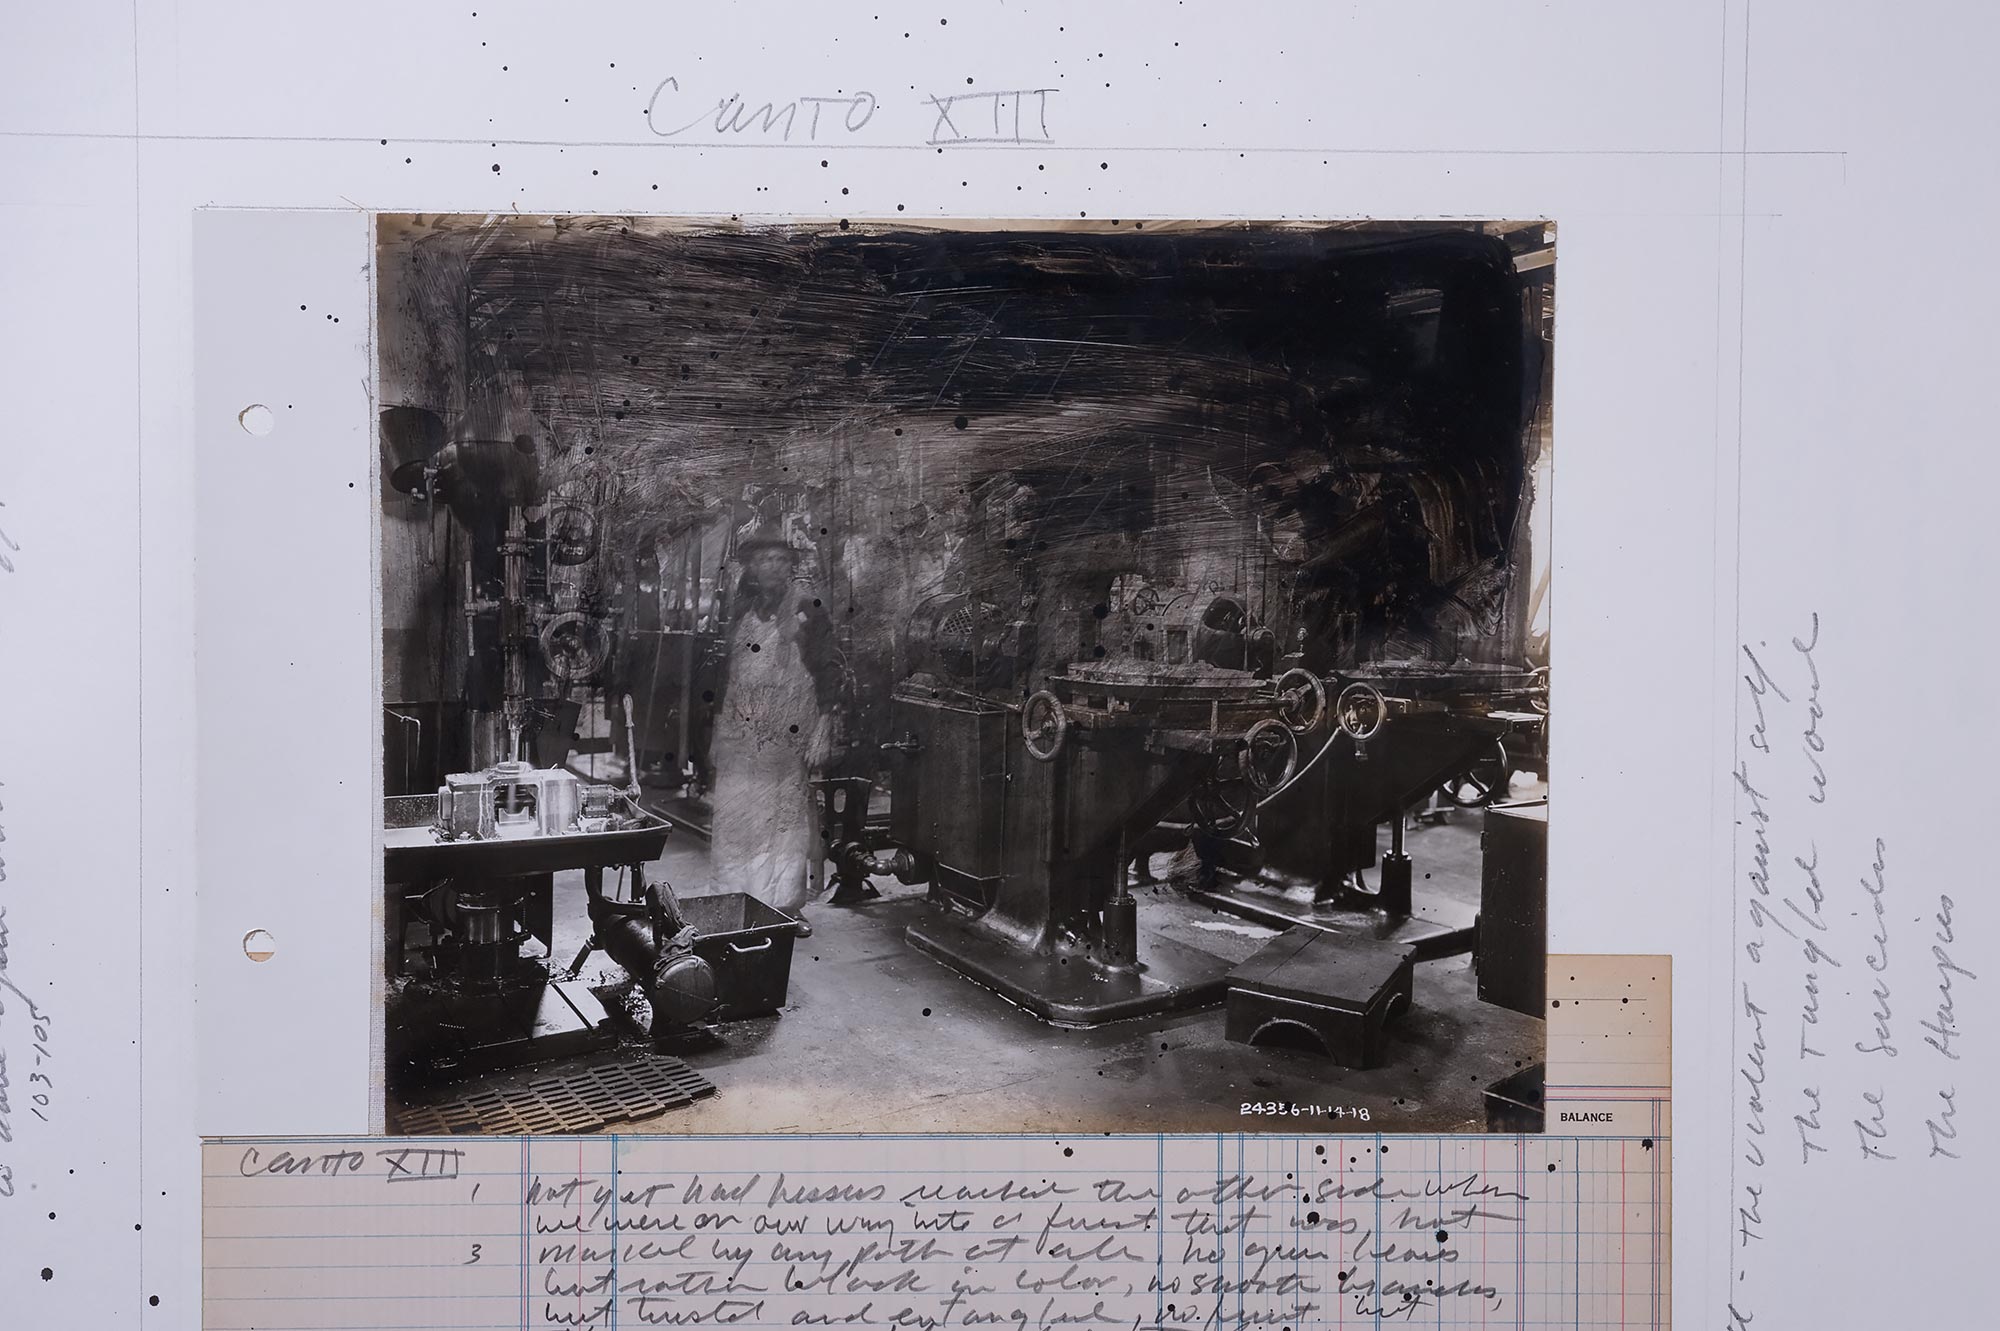 Canto XIII
24356-11-14-18
BALANCE
Canto XIII
1 Not yet had Nessus reached the other side when
we were on our way into a forest that was not
3 marked by any path at all, no green leaves
but rather black in color, no smooth branches,
but twisted and entangled, no fruit but
The violent against self.
The Tangled wood
The Suicides
The Harpies
103-105